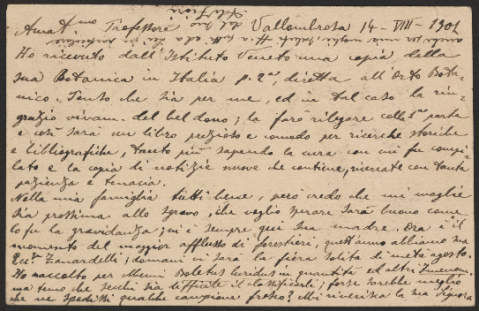 Amat.mo Professore, Vallombrosa 14-VIII-1901
Ho ricevuto dall'Istituto Veneto una copia della
sua Botanica in Italia p. 2ª, diretta all'Orto Bota-
nico. Penso che sia per me, ed in tal caso la rin-
grazio vivam. del bel dono; la farò rilegare coll 1ª parte
e così sarà un libro prezioso e comodo per ricerche storiche
e bibliografiche, tanto più sapendo la cura con cui fu compi-
lato e la copia di notizie nuove che contiene, ricercate con tanta
pazienza e tenacia.
Nella mia famiglia tutti bene, però credo che mia moglie
sia prossima allo sgravo, che voglio sperare sarà buono come
lo fu la gravidanza; vi è sempre qui sua madre. Ora è il
momento del maggior afflusso di forestieri, quest'anno abbiamo
Zanardelli; domani vi sarà la fiera solita di metà agosto.
Ho raccolto per Mussi Boletus luridus in quantità ed altri
ma temo che secchi sia difficile il classificarli; forse sarebbe meglio
che ne spedissi qualche campione fresco? Mi riverisca la sua Signora